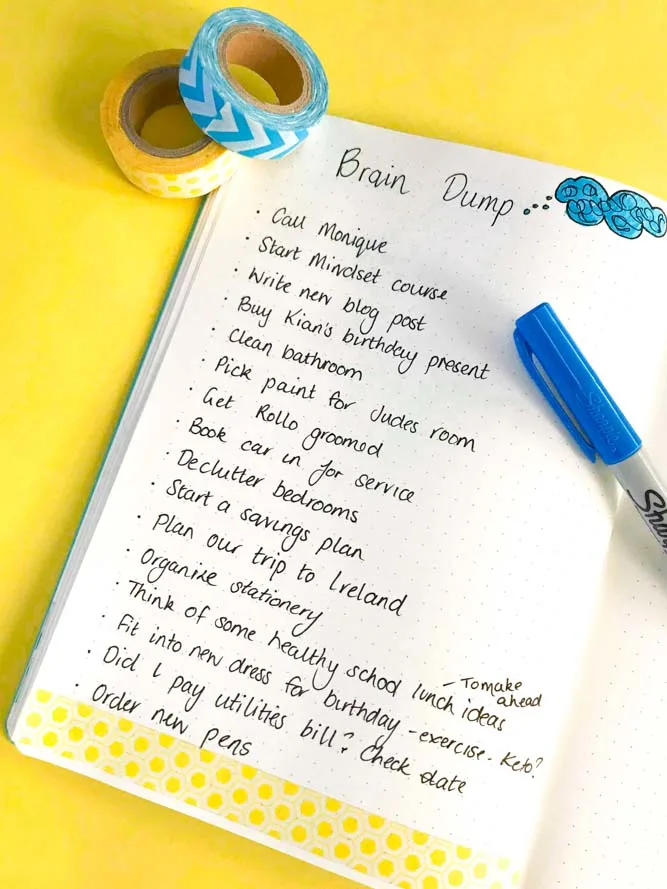 Brain Dump
· Call Monique
· Start Mindset course
· Write new blog post
· Buy Kian's birthday present
· Clean bathroom
· Pick paint for Judes room
· Get Rollo groomed
· Book car in for service
· Declutter bedrooms
· Start a savings plan
· Plan our trip to Ireland
· Organize stationery
· Think of some healthy school lunch ideas
- To make
ahead
· Fit into new dress for birthday - exercise - Keto?
· Did I pay utilities bill? Check date
· Order new pens
Sharpie